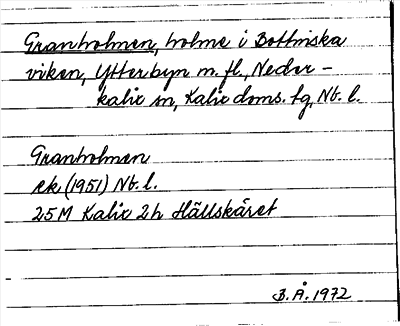 Granholmen, holme i Bottniska
viken, Ytterbyn m. fl., Neder-
kalix sn, Kalix doms. tg, Nb. l.
Granholmen
ek (1951) Nb. l.
25M Kalix 2h Hällskäret
B. Å. 1972